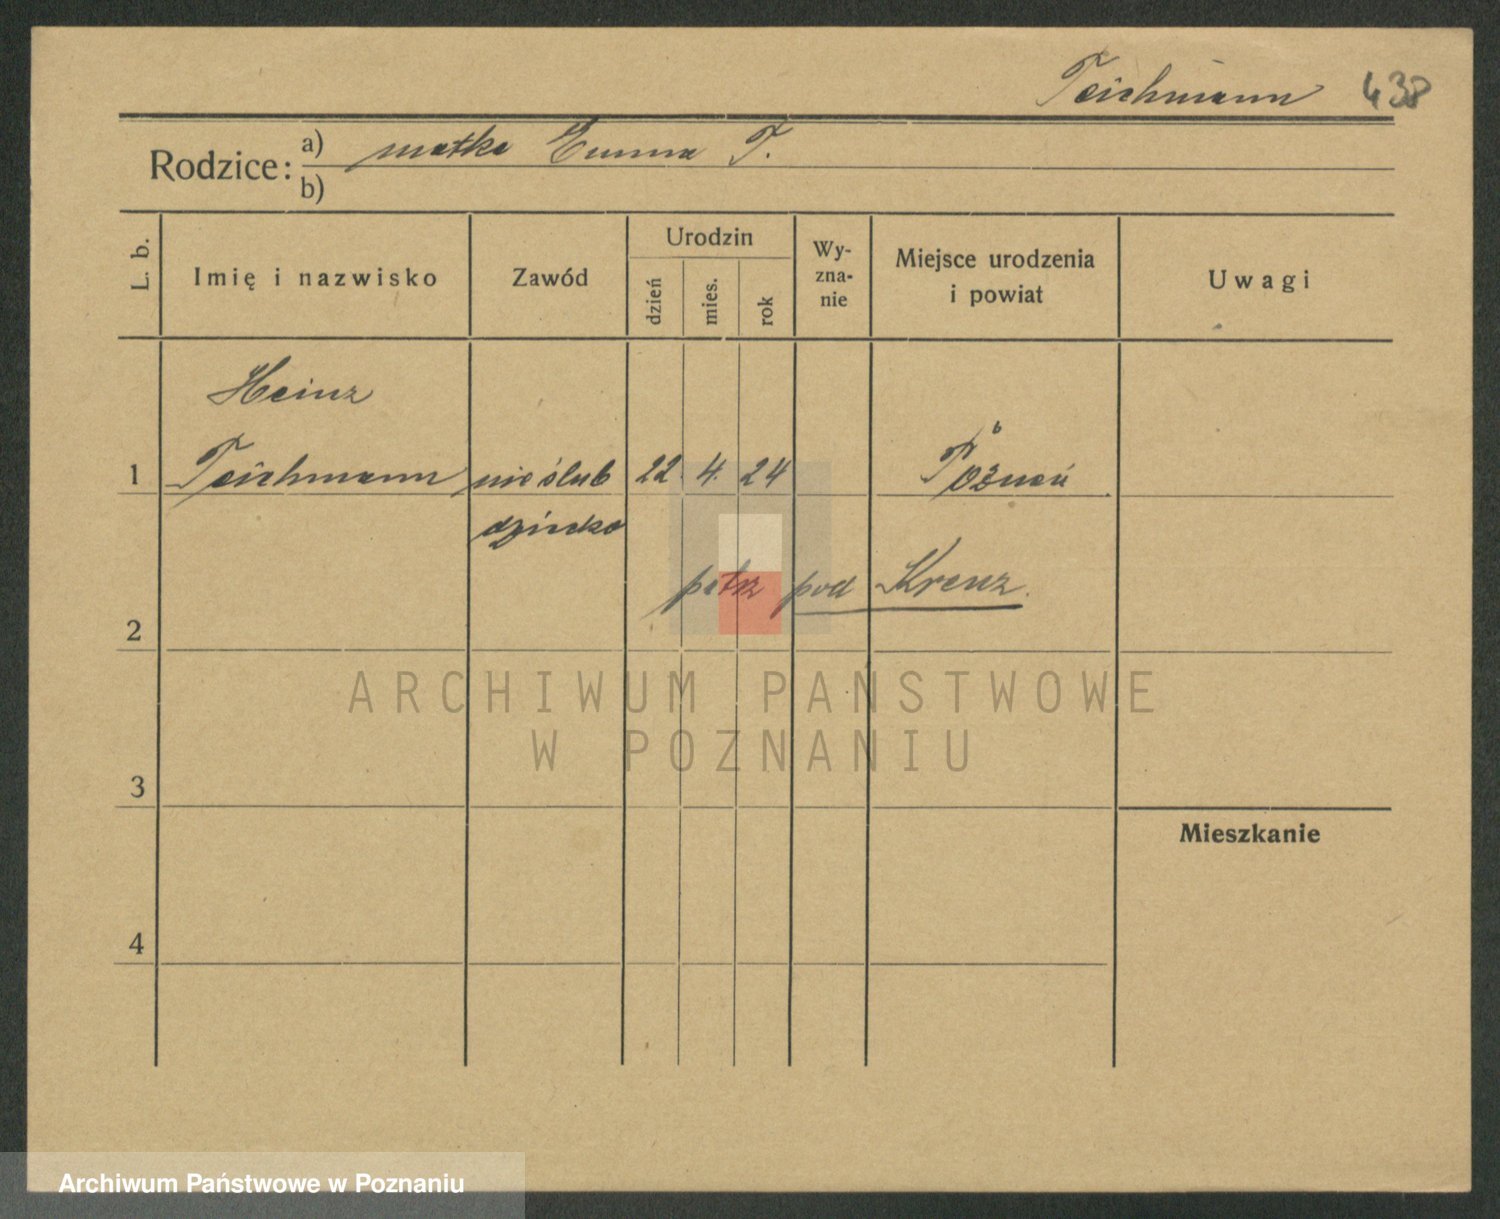 Teichmann 438
Rodzice: a) matka Emma T.
b)
L. b.
Imię i nazwisko
Zawód
Urodzin
dzień
mies.
rok
Wy-
zna-
nie
Miejsce urodzenia
i powiat
Uwagi
Heinz
1 Teichmann nieślub 22. 4. 24 Poznań
dziecko
patrz pod Krenz.
2
ARCHIWUM PAŃSTWOWE
W POZNANIU
3
Mieszkanie
4
Archiwum Państwowe w Poznaniu